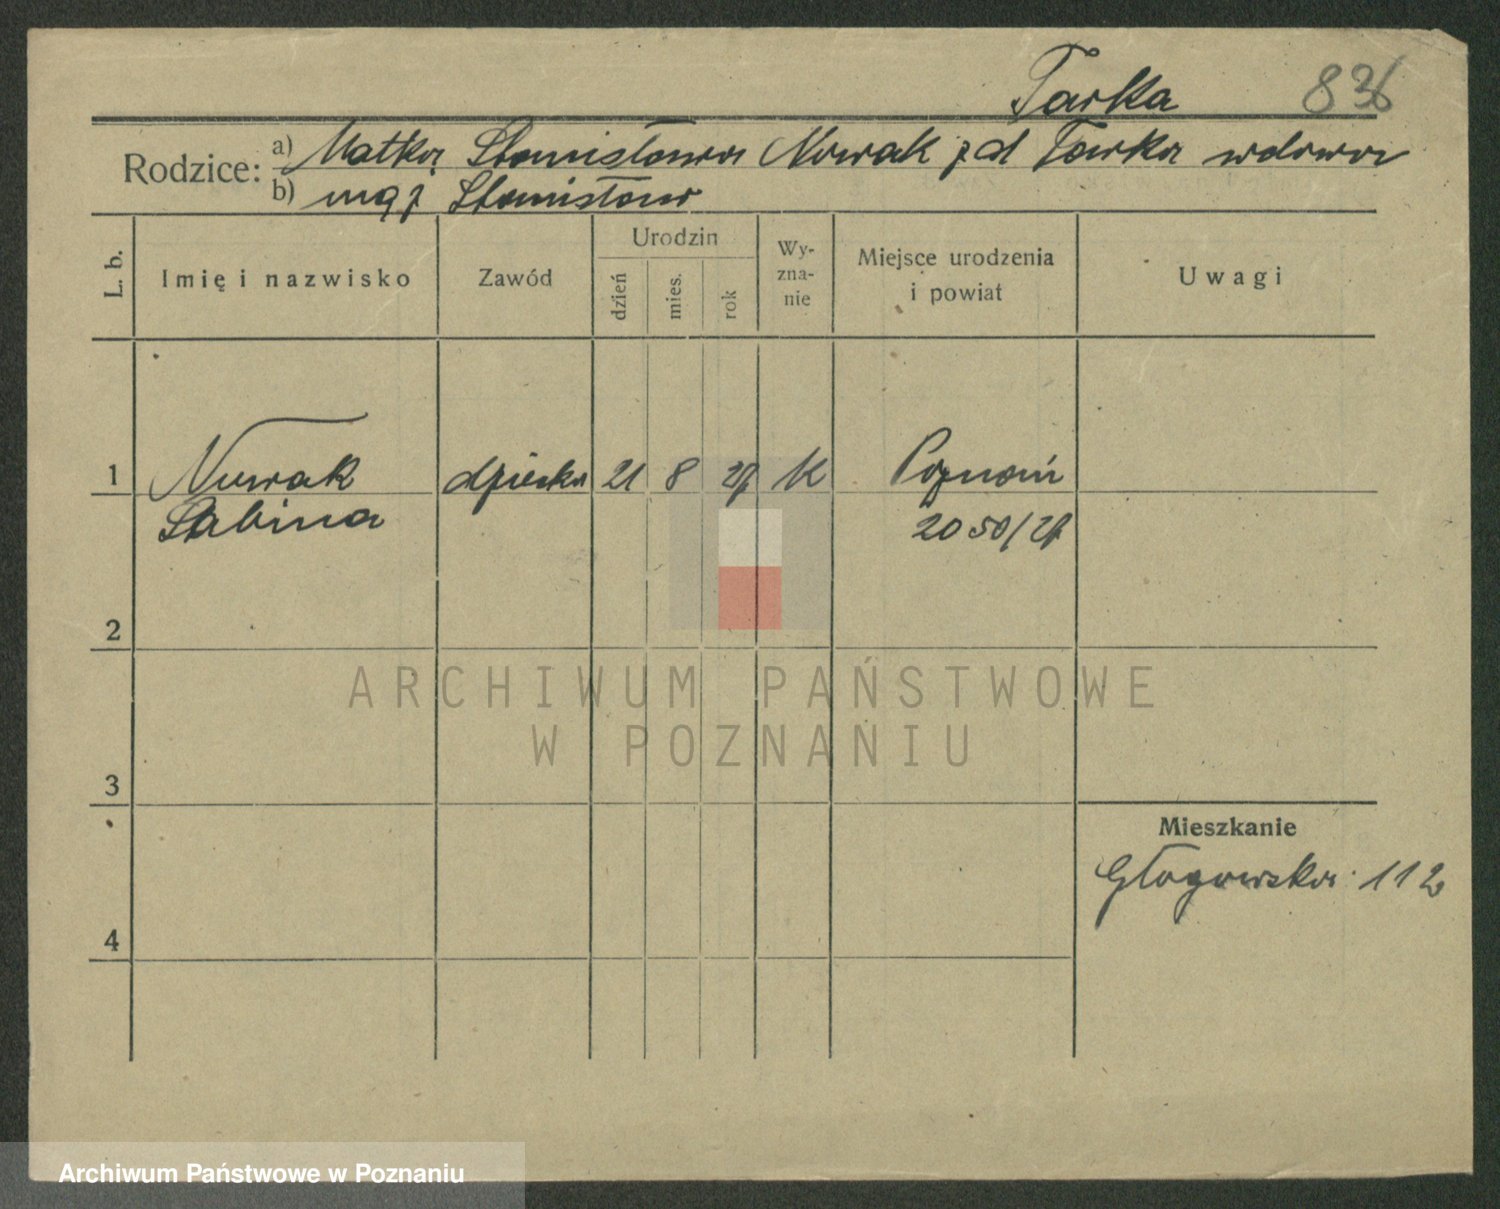 Tarka 836
Rodzice: a) Matka Stanisława Nowak z d Tarka wdowa
b) mąż Stanisław
L. b.
Imię i nazwisko
Zawód
Urodzin
dzień
mies.
rok
Wy-
zna-
nie
Miejsce urodzenia
i powiat
Uwagi
1 Nowak dziecko 21 8 K Poznań
Sabina 2050/
2
3
4
Mieszkanie
Głogowska 112
ARCHIWUM PAŃSTWOWE
W POZNANIU
Archiwum Państwowe w Poznaniu